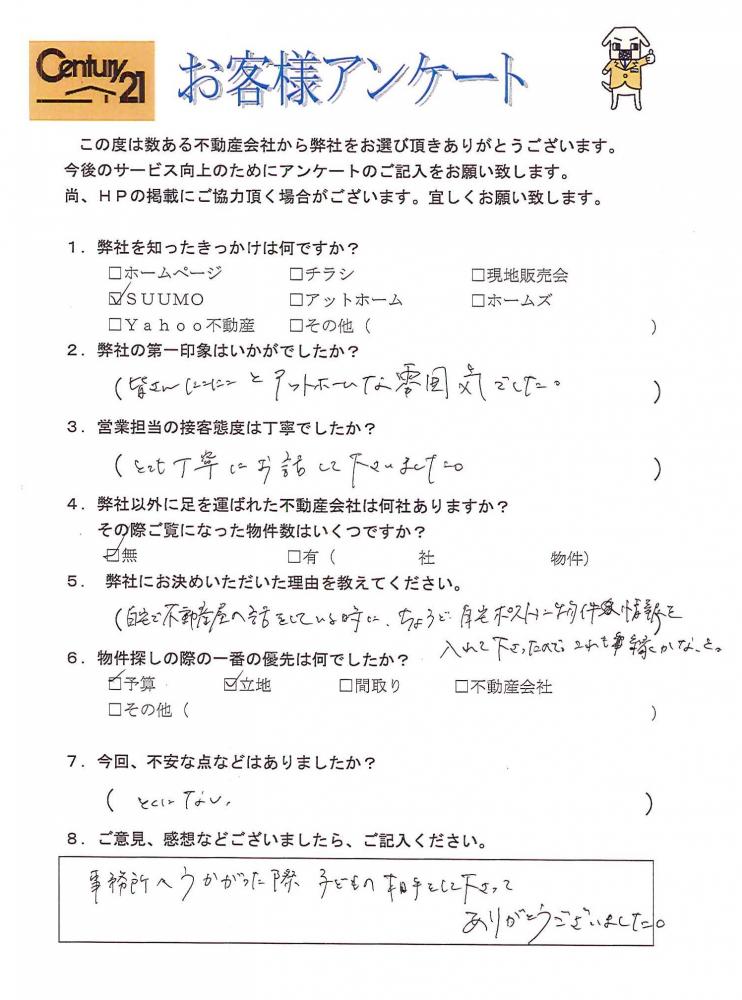 Century 21
お客様アンケート
この度は数ある不動産会社から弊社をお選び頂きありがとうございます。
今後のサービス向上のためにアンケートのご記入をお願い致します。
尚、HPの掲載にご協力頂く場合がございます。宜しくお願い致します。
1．弊社を知ったきっかけは何ですか？
□ホームページ □チラシ □現地販売会
☑SUUMO □アットホーム □ホームズ
□Yahoo不動産 □その他（ ）
2．弊社の第一印象はいかがでしたか？
（皆さんにこにことアットホームな雰囲気でした。）
3．営業担当の接客態度は丁寧でしたか？
（とても丁寧にお話して下さいました。）
4．弊社以外に足を運ばれた不動産会社は何社ありますか？
その際ご覧になった物件数はいくつですか？
☑無 □有（ 社 物件）
5．弊社にお決めいただいた理由を教えてください。
（自宅で不動産屋の話をしている時に、ちょうど自宅ポストに物件情報を
入れて下さったので、これも縁かな、と。
6．物件探しの際の一番の優先は何でしたか？
☑予算 ☑立地 □間取り □不動産会社
□その他（ ）
7．今回、不安な点などはありましたか？
（とくにない。）
8．ご意見、感想などございましたら、ご記入ください。
事務所へうかがった際 子どもの相手をして下さって
ありがとうございました。